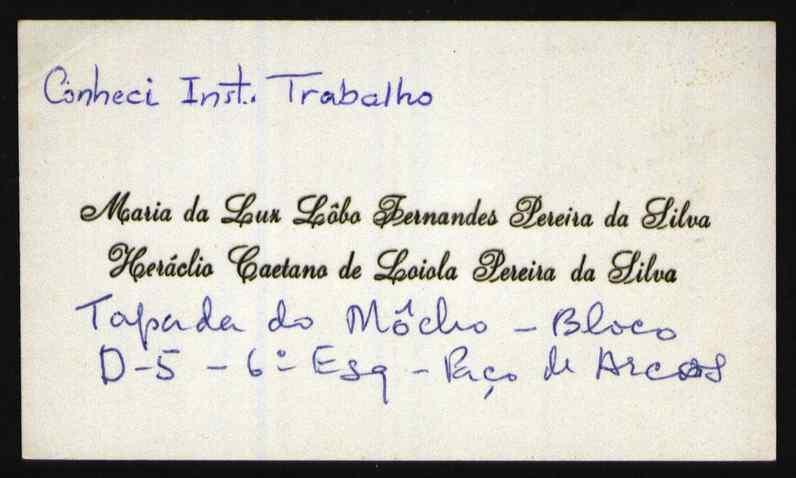 Conheci Inst. Trabalho
Maria da Lux Lôbo Fernandes Pereira da Silva
Heráclio Caetano de Loiola Pereira da Silva
Tapada do Môcho - Bloco
D-5 - 6º Esq - Paço de Arcos